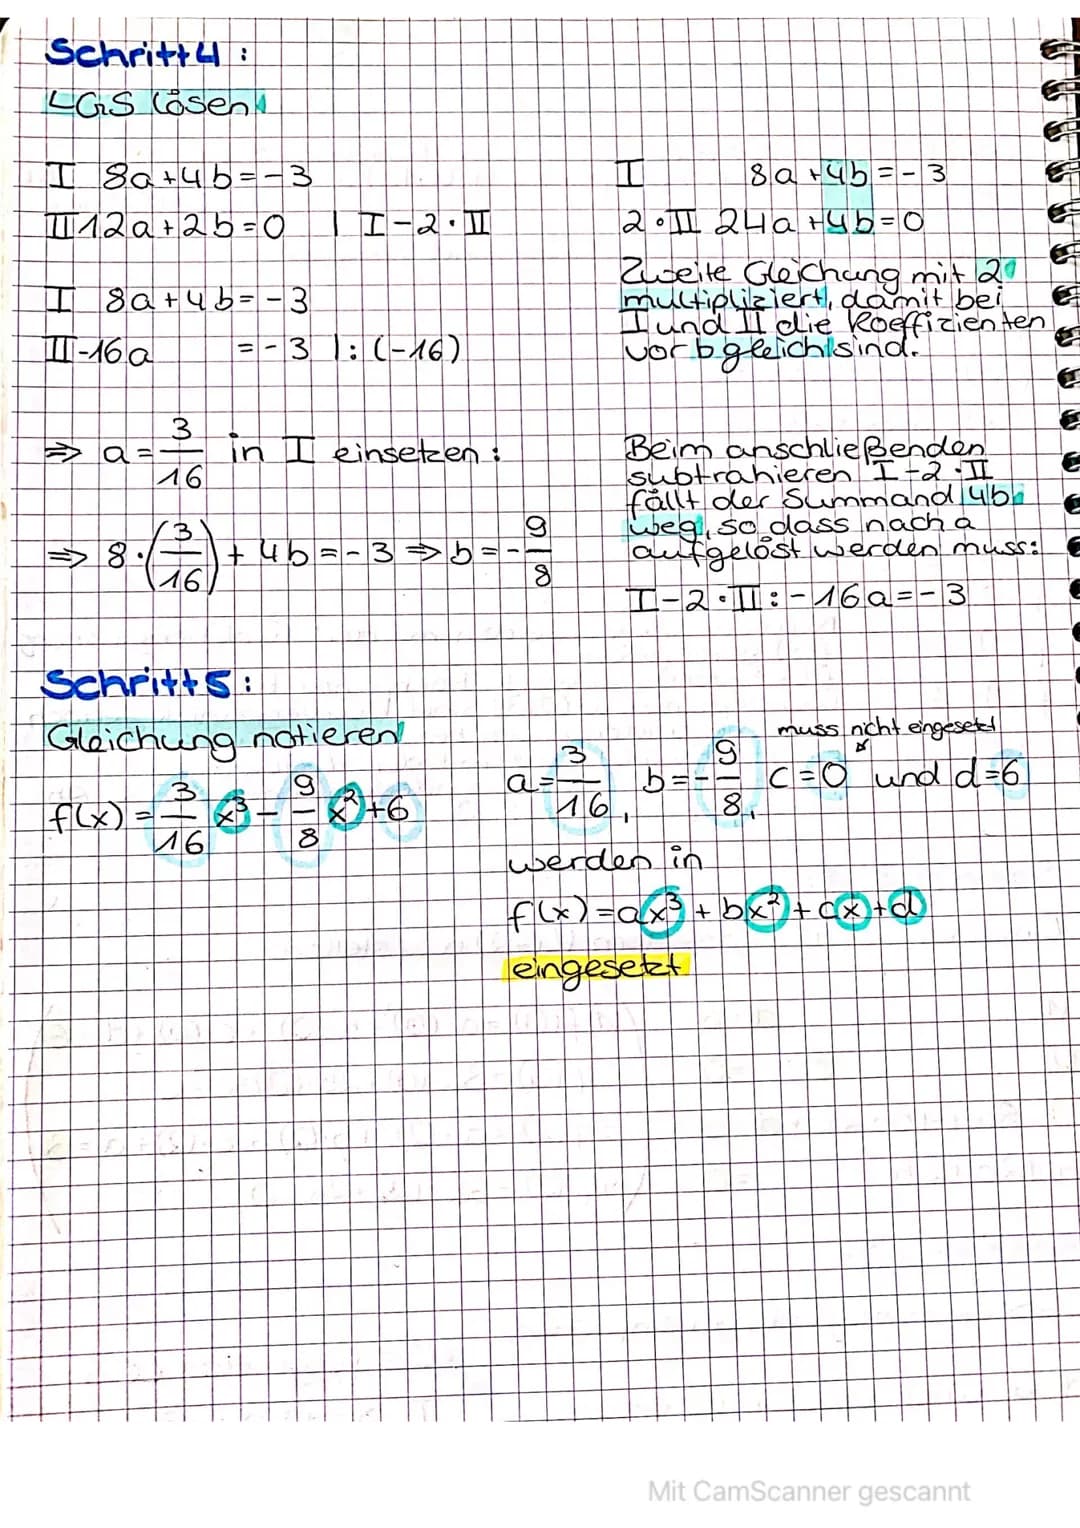 Schritt 4:
LGS lösen
I 8a+4b=-3
II 12a+2b=0 | I-2·II
I 8a+4b=-3
II -16a =-3 |:(-16)
⇒ a = 3/16 in I einsetzen:
⇒ 8·(3/16) + 4b = -3 ⇒ b = -9/8
I 8a+4b=-3
2·II 24a+4b=0
Zweite Gleichung mit 2
multipliziert, damit bei
I und II die Koeffizienten
vor b gleich sind.
Beim anschließenden
subtrahieren I-2·II
fällt der Summand 4b
weg, so dass nach a
aufgelöst werden muss:
I-2·II: -16a=-3
Schritt 5:
Gleichung notieren
f(x) = 3/16 x³ - 9/8 x² + 6
muss nicht eingesetzt
a = 3/16, b = -9/8, c = 0 und d = 6
werden in
f(x) = ax³ + bx² + cx + d
eingesetzt
Mit CamScanner gescannt